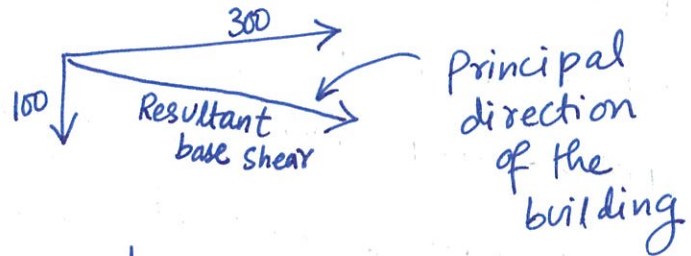 300
100
Resultant
base shear
Principal
direction
of the
building